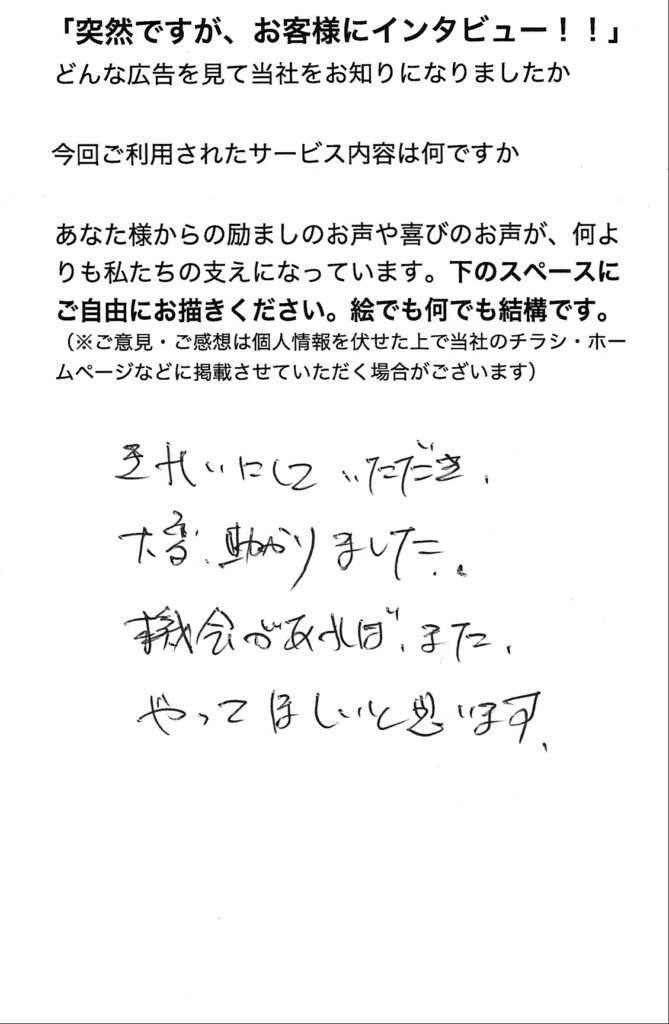 「突然ですが、お客様にインタビュー！！」
どんな広告を見て当社をお知りになりましたか
今回ご利用されたサービス内容は何ですか
あなた様からの励ましのお声や喜びのお声が、何よ
りも私たちの支えになっています。下のスペースに
ご自由にお描きください。絵でも何でも結構です。
（※ご意見・ご感想は個人情報を伏せた上で当社のチラシ・ホー
ムページなどに掲載させていただく場合がございます）
きれいにして いただき、
大変、助かりました。
機会があれば、また、
やってほしいと思います。